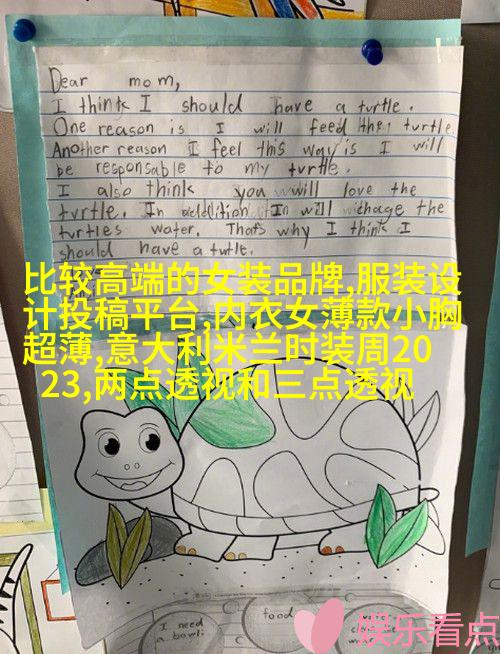 Dear mom,
I think I should have a turtle.
One reason is I will feed the turtle.
Another reason I feel this way is I will
be responsable to my turtle.
I also think you will love the
turtle. In addition I will chage the
turtles water. That's why I think I
should have a turtle.
比较高端的女装品牌,服装设
计投稿平台,内衣女薄款小胸
超薄,意大利米兰时装周20
23,两点透视和三点透视
I need
a bowl
food
娱乐看点